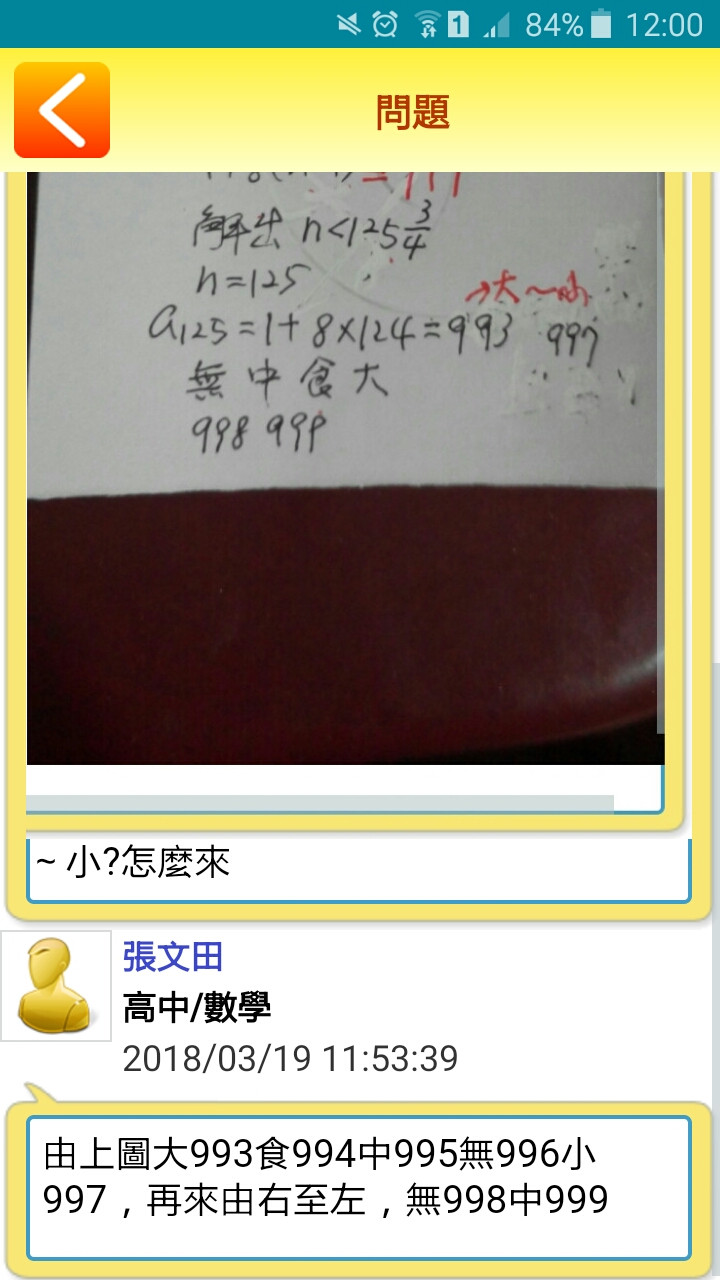 84% 12:00
問題
解出 n<125 3/4
n=125
→大~小
a125=1+8×124=993 997
無中食大
998 999
~ 小?怎麼來
張文田
高中/數學
2018/03/19 11:53:39
由上圖大993食994中995無996小
997，再來由右至左，無998中999